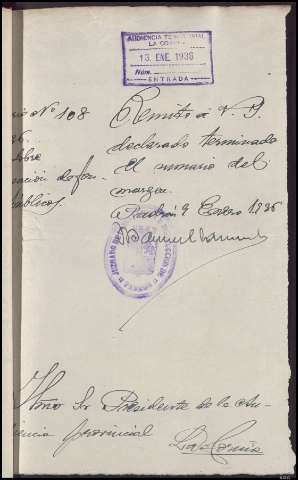 AUDIENCIA TERRITORIAL
LA CORUÑA
13. ENE 1936
Núm.
ENTRADA
rio Nº 108
36.
sobre
ación de fon
públicos
Remito a V. I.
declarado terminado
el sumario del
margen.
Padrón 9 Enero 1936
Manuel
JUZGADO DE
Iltmo Sr Presidente de la Au-
diencia provincial
La Coruña